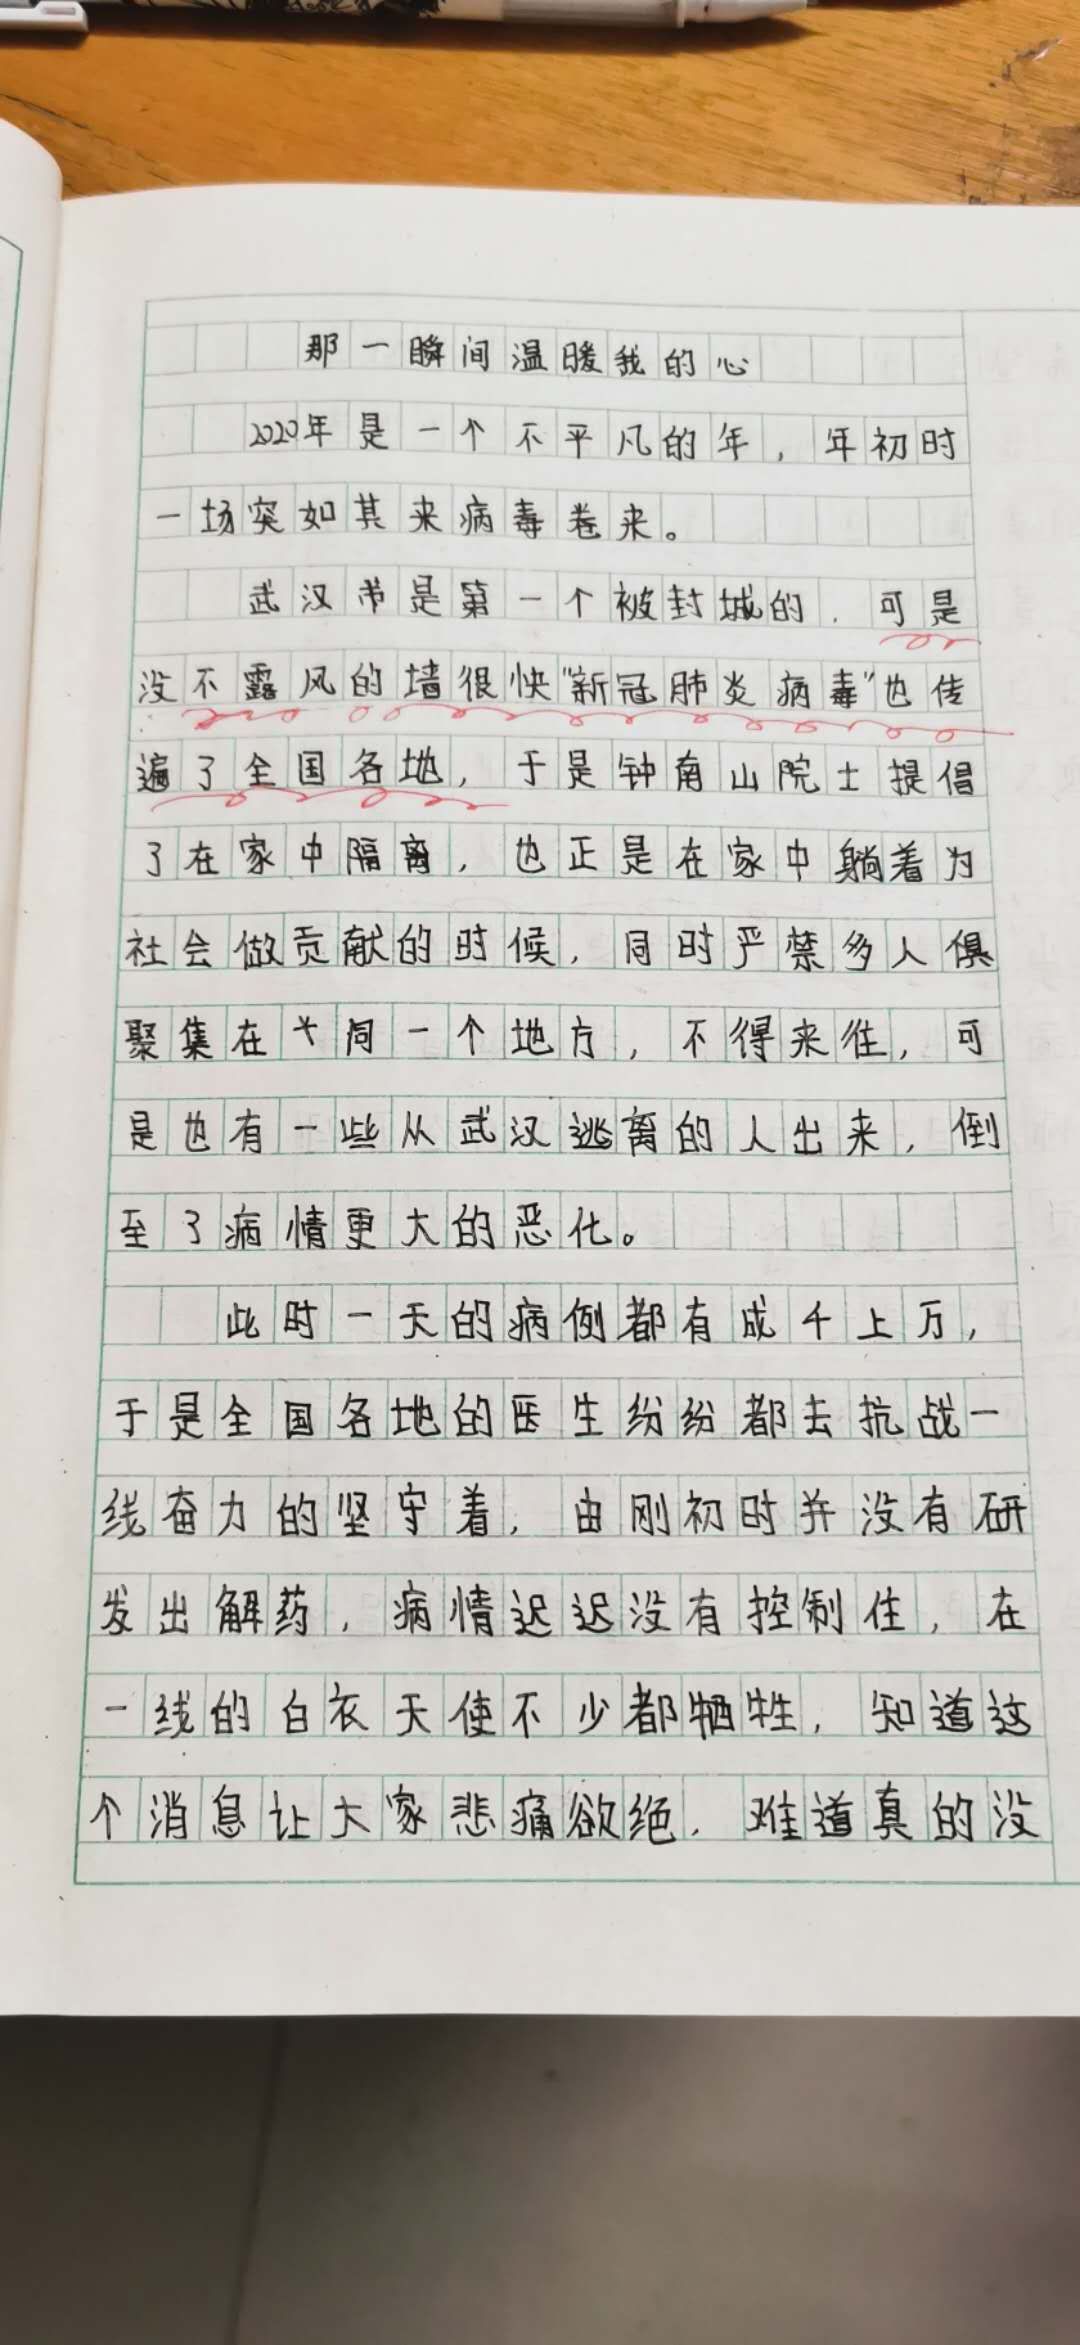 那一瞬间温暖我的心
2020年是一个不平凡的年，年初时
一场突如其来病毒卷来。
武汉市是第一个被封城的，可是
没不露风的墙很快“新冠肺炎病毒”也传
遍了全国各地，于是钟南山院士提倡
了在家中隔离，也正是在家中躺着为
社会做贡献的时候，同时严禁多人俱
聚集在同一个地方，不得来往，可
是也有一些从武汉逃离的人出来，倒
至了病情更大的恶化。
此时一天的病例都有成千上万，
于是全国各地的医生纷纷都去抗战一
线奋力的坚守着，由刚初时并没有研
发出解药，病情迟迟没有控制住，在
一线的白衣天使不少都牺牲，知道这
个消息让大家悲痛欲绝，难道真的没